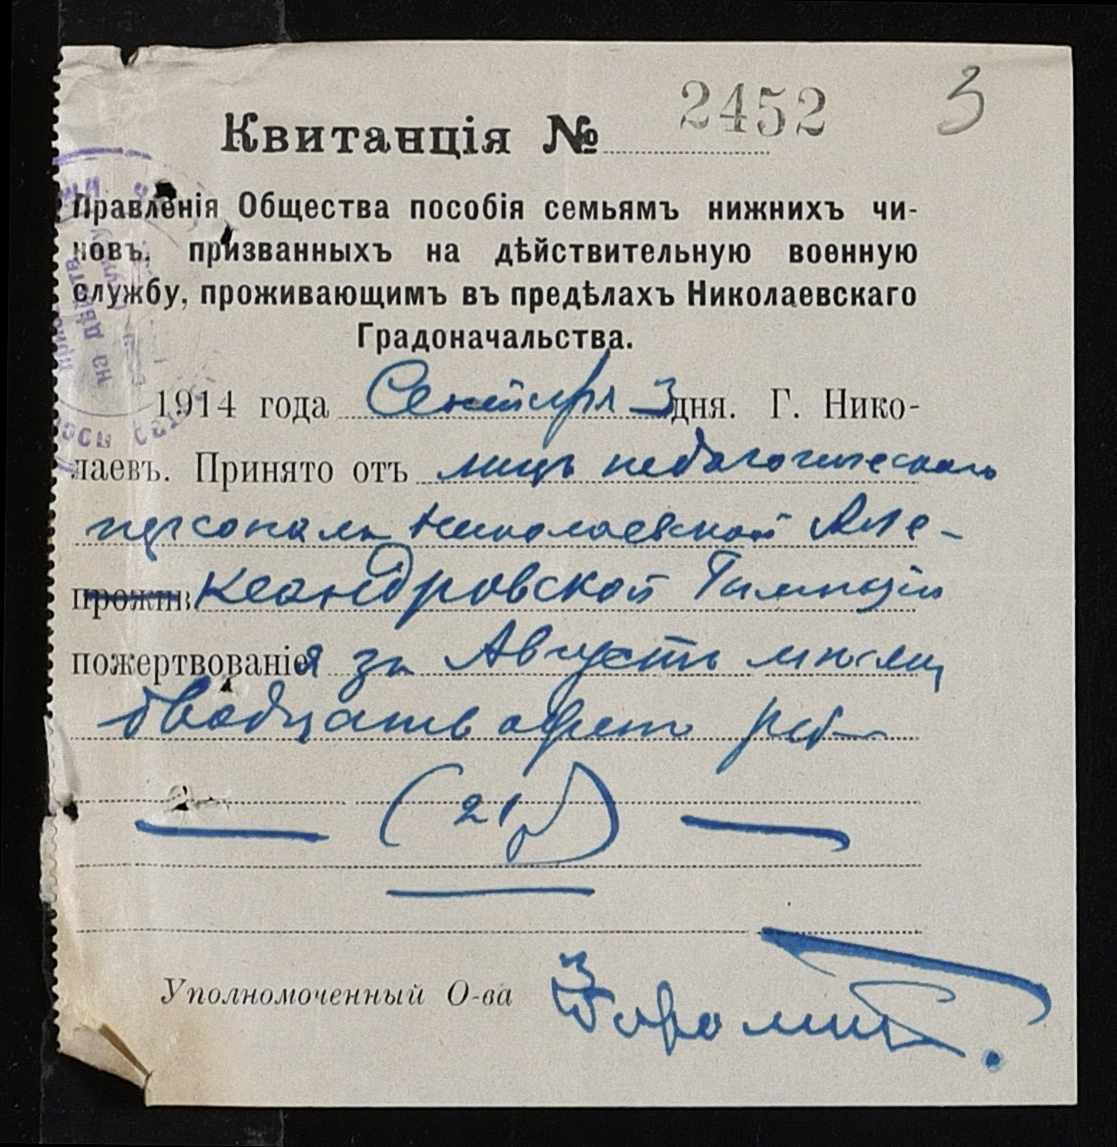 3
Квитанція № 2452
Правленія Общества пособія семьямъ нижнихъ чи-
новъ, призванныхъ на дѣйствительную военную
службу, проживающимъ въ предѣлахъ Николаевскаго
Градоначальства.
1914 года Сентября 3 дня. Г. Нико-
лаевъ. Принято отъ лицъ педагогическаго
персонала Николаевской Але-
ксандровской Гимназіи
пожертвованія за Августъ мѣсяц
двадцать один руб
(21 р)
Уполномоченный О-ва